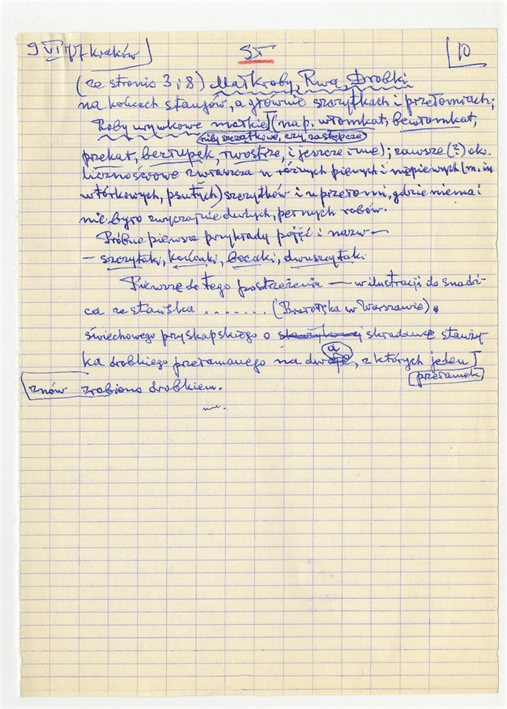 9 VI 77 Kraków ST 10
(ze stronic 3 i 8) Małkroby, Rwa, Drobki
na końcach stansów, a głównie szczytkach i przełomiach;
Roby urywkowe małkie (np. włomkat, bewłomkat,
niby szczątkowe, czy zastępcze
przekat, bezłupek, twostrze, i jeszcze inne); zawsze (?) ok.
licznościowe zwłaszcza w różnych piewych i niepiewych (m. in.
wtórkowych, psutych) szczytków i u przełomi, gdzie niema i
nie było zwyczajnie dużych, pełnych robów.
Próbne pierwsze przykłady pojęć i nazw —
— szczytaki, końcaki, bocaki, dwuszczytaki
Pierwsze do tego postrzeżenia — w ilustracji do
ca ze stańska ....... ( w Warszawie)
świechowego pryskapskiego o składance stanży
ka drobkiego przełamanego na dwa, z których jeden
przełamek
znów zrobiono drobkiem.